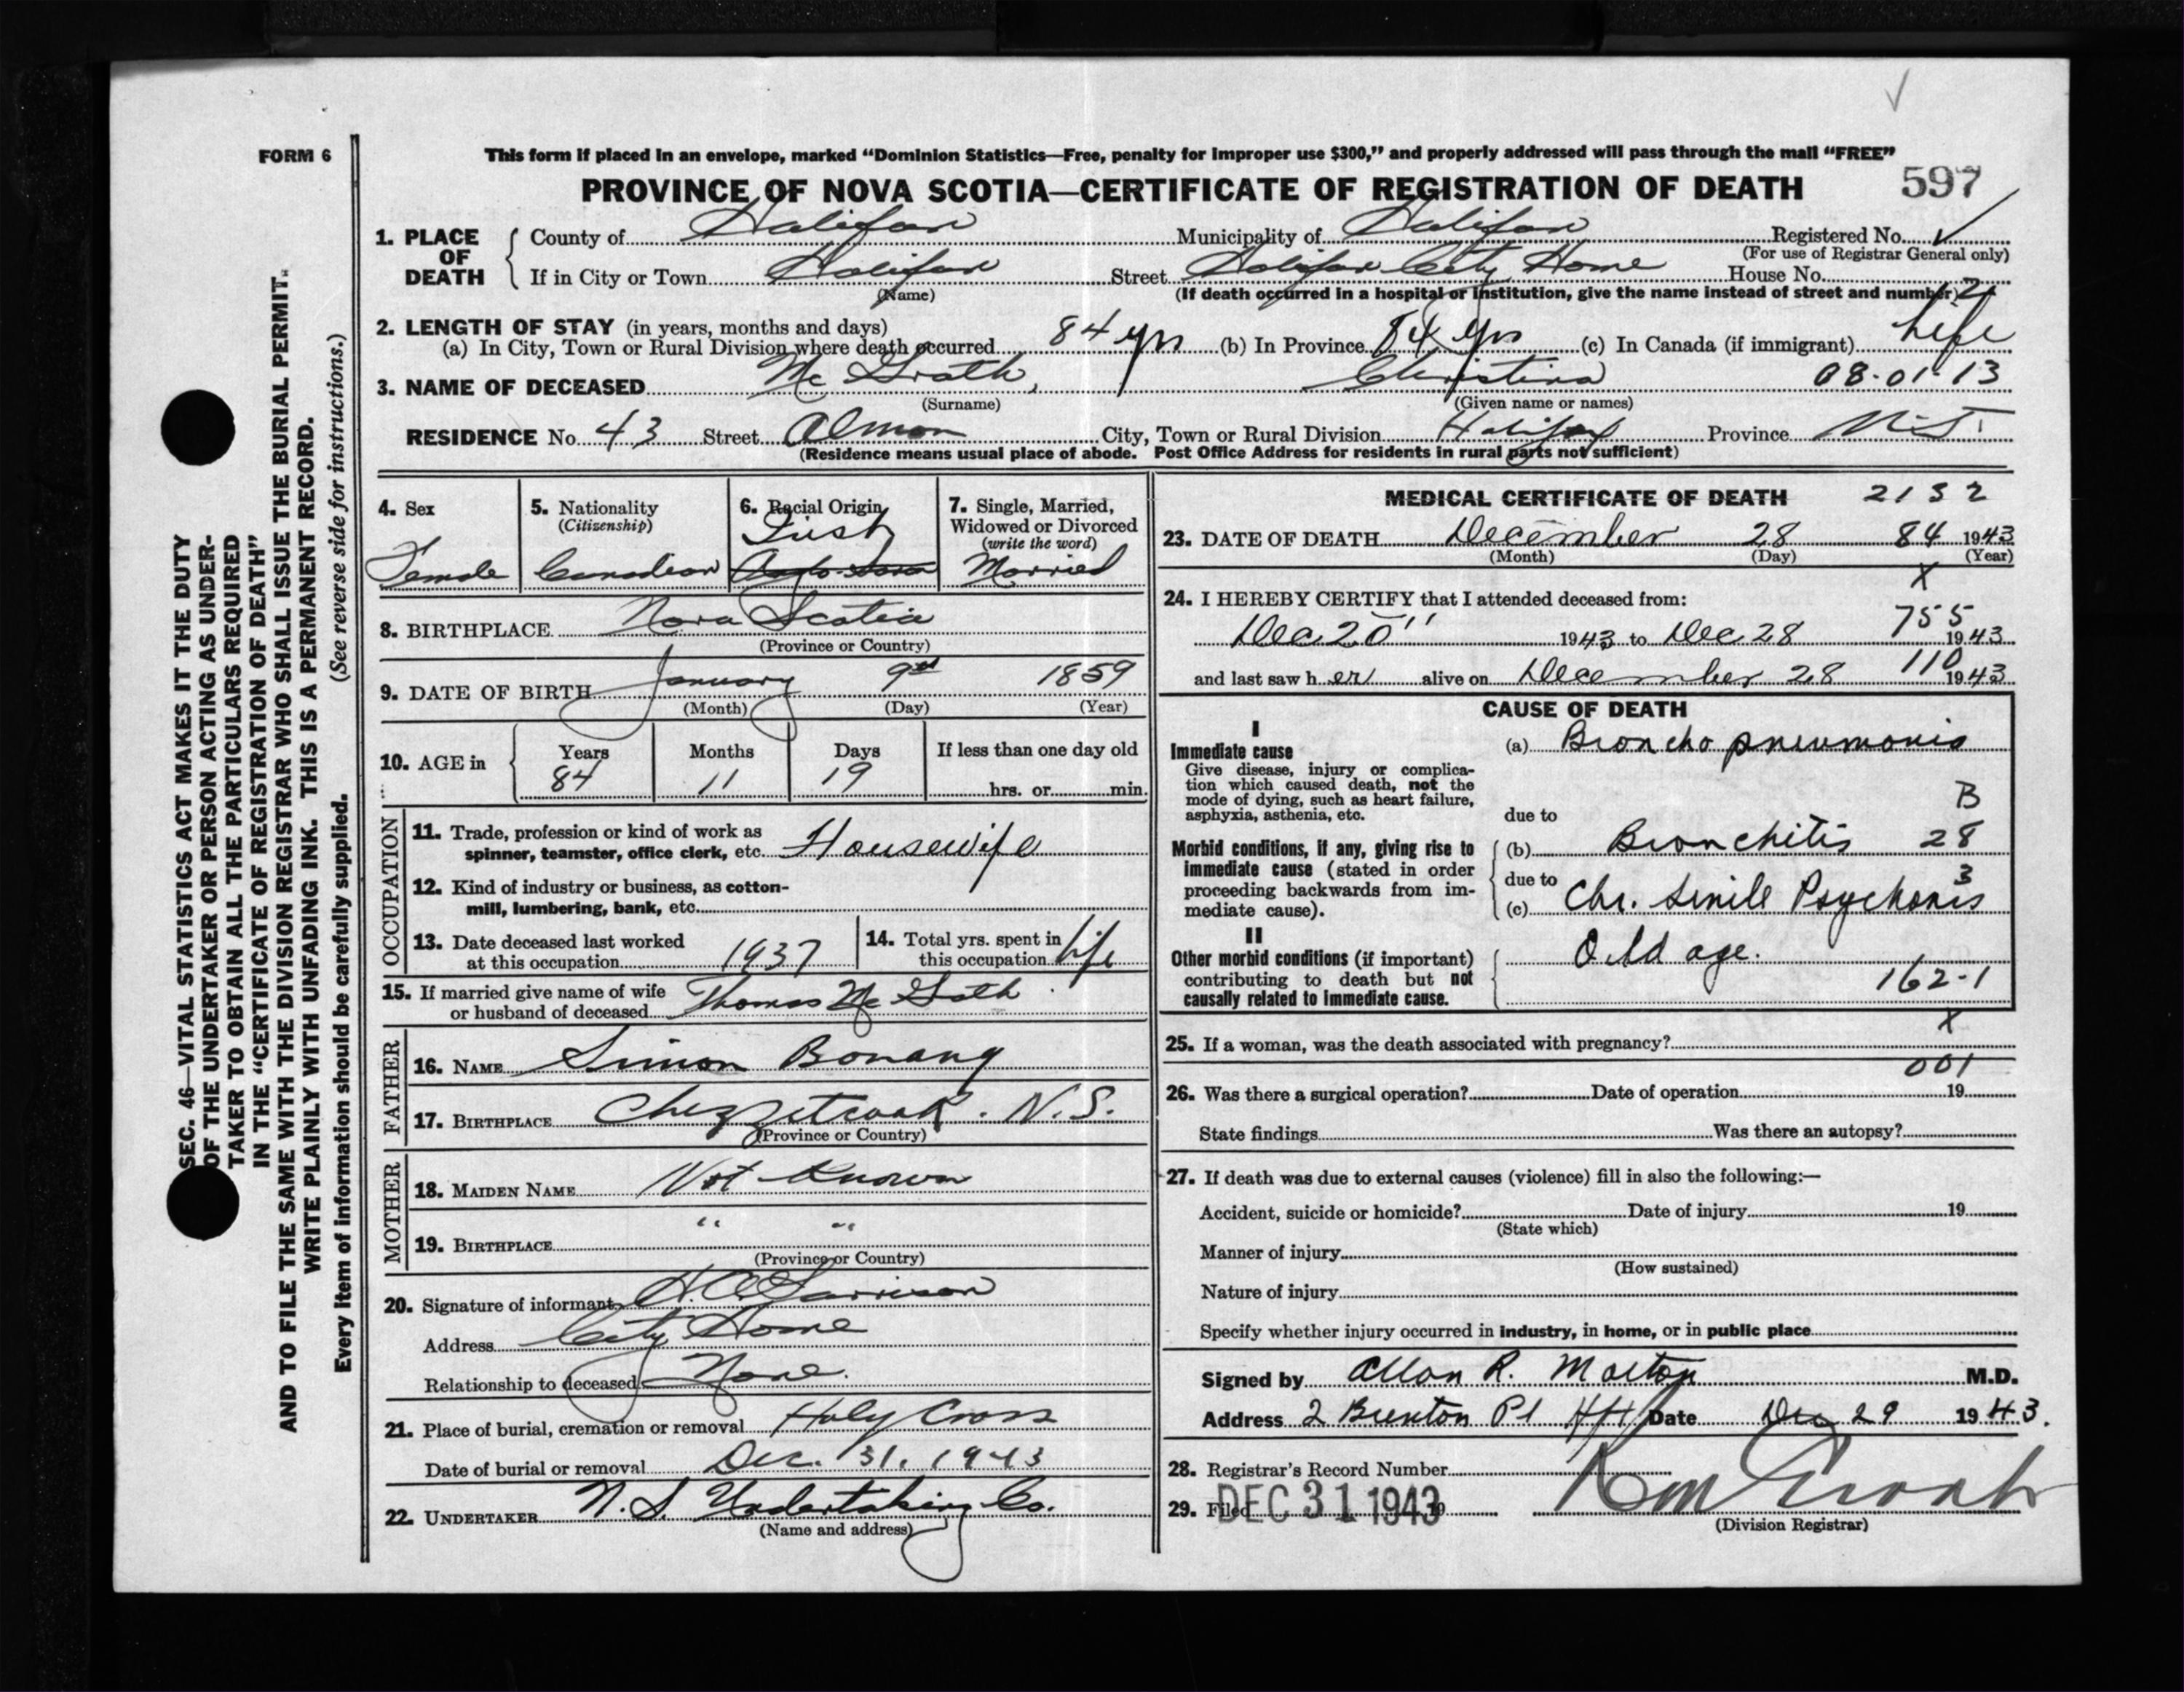 FORM 6
This form if placed in an envelope, marked “Dominion Statistics—Free, penalty for improper use $300,” and properly addressed will pass through the mail “FREE”
PROVINCE OF NOVA SCOTIA—CERTIFICATE OF REGISTRATION OF DEATH 597
1. PLACE OF DEATH
County of Halifax Municipality of Halifax Registered No.
(For use of Registrar General only)
If in City or Town Halifax Street Halifax City Home House No.
(Name) (If death occurred in a hospital or institution, give the name instead of street and number) 2
2. LENGTH OF STAY (in years, months and days)
(a) In City, Town or Rural Division where death occurred 84 yrs (b) In Province 84 yrs (c) In Canada (if immigrant) Life
3. NAME OF DECEASED Mc Grath, Christina 08-01-13
(Surname) (Given name or names)
RESIDENCE No. 43 Street Almon City, Town or Rural Division Halifax Province N.S.
(Residence means usual place of abode. Post Office Address for residents in rural parts not sufficient)
4. Sex
Female
5. Nationality
(Citizenship)
Canadian
6. Racial Origin
Irish
7. Single, Married,
Widowed or Divorced
(write the word)
Married
8. BIRTHPLACE Nova Scotia
(Province or Country)
9. DATE OF BIRTH January 9th 1859
(Month) (Day) (Year)
10. AGE in
Years Months Days If less than one day old
84 11 19 hrs. or min.
OCCUPATION
11. Trade, profession or kind of work as
spinner, teamster, office clerk, etc. Housewife
12. Kind of industry or business, as cotton-
mill, lumbering, bank, etc.
13. Date deceased last worked
at this occupation 1937
14. Total yrs. spent in
this occupation Life
15. If married give name of wife
or husband of deceased Thomas Mc Grath
FATHER
16. NAME Simon Bonang
17. BIRTHPLACE Chezzetcook. N.S.
(Province or Country)
MOTHER
18. MAIDEN NAME Not Known
19. BIRTHPLACE " "
(Province or Country)
20. Signature of informant
Address City Home
Relationship to deceased None.
21. Place of burial, cremation or removal Holy Cross
Date of burial or removal Dec. 31. 1943
22. UNDERTAKER N. S. Undertaking Co.
(Name and address)
MEDICAL CERTIFICATE OF DEATH 2132
23. DATE OF DEATH December 28 84 1943
(Month) (Day) (Year)
X
24. I HEREBY CERTIFY that I attended deceased from:
755
Dec 20" 1943 to Dec 28 1943
110
and last saw h er alive on December 28 1943
CAUSE OF DEATH
I
Immediate cause
Give disease, injury or complica-
tion which caused death, not the
mode of dying, such as heart failure,
asphyxia, asthenia, etc.
(a) Broncho pneumonia
B
due to
Morbid conditions, if any, giving rise to
immediate cause (stated in order
proceeding backwards from im-
mediate cause).
(b) Bronchitis 28
due to 3
(c) Chr. Senile Psychosis
II
Other morbid conditions (if important)
contributing to death but not
causally related to immediate cause.
Old age.
162-1
X
25. If a woman, was the death associated with pregnancy?
001
26. Was there a surgical operation? Date of operation 19
State findings Was there an autopsy?
27. If death was due to external causes (violence) fill in also the following:—
Accident, suicide or homicide? Date of injury 19
(State which)
Manner of injury
(How sustained)
Nature of injury
Specify whether injury occurred in industry, in home, or in public place
Signed by Allan R. Morton M.D.
Address 2 Brenton Pl Hfx Date Dec 29 1943.
28. Registrar's Record Number
29. Filed DEC 31 1943 19
(Division Registrar)
SEC. 46—VITAL STATISTICS ACT MAKES IT THE DUTY
OF THE UNDERTAKER OR PERSON ACTING AS UNDER-
TAKER TO OBTAIN ALL THE PARTICULARS REQUIRED
IN THE “CERTIFICATE OF REGISTRATION OF DEATH”
AND TO FILE THE SAME WITH THE DIVISION REGISTRAR WHO SHALL ISSUE THE BURIAL PERMIT.
WRITE PLAINLY WITH UNFADING INK. THIS IS A PERMANENT RECORD.
Every item of information should be carefully supplied. (See reverse side for instructions.)